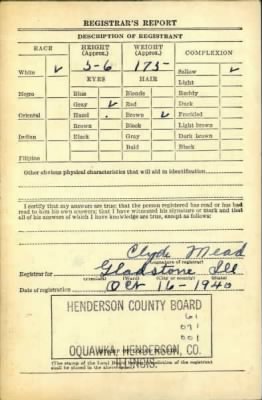 REGISTRAR'S REPORT
DESCRIPTION OF REGISTRANT
RACE HEIGHT (Approx.) WEIGHT (Approx.) COMPLEXION
White ✓ 5-6 175- Sallow ✓
EYES HAIR Light
Negro Blue Blonde Ruddy
Gray ✓ Red Dark
Oriental Hazel Brown ✓ Freckled
Brown Black Light brown
Indian Black Gray Dark brown
Bald Black
Filipino
Other obvious physical characteristics that will aid in identification
I certify that my answers are true; that the person registered has read or has had
read to him his own answers; that I have witnessed his signature or mark and that
all of his answers of which I have knowledge are true, except as follows:
Clyde Mead
(Signature of registrar)
Registrar for Gladstone Ill
(Precinct) (Ward) (City or county) (State)
Date of registration Oct 16-1940
HENDERSON COUNTY BOARD
61
071
001
OQUAWKA, HENDERSON, CO.
ILLINOIS.
(The stamp of the Local Board of the registrant
shall be placed in the above space.)